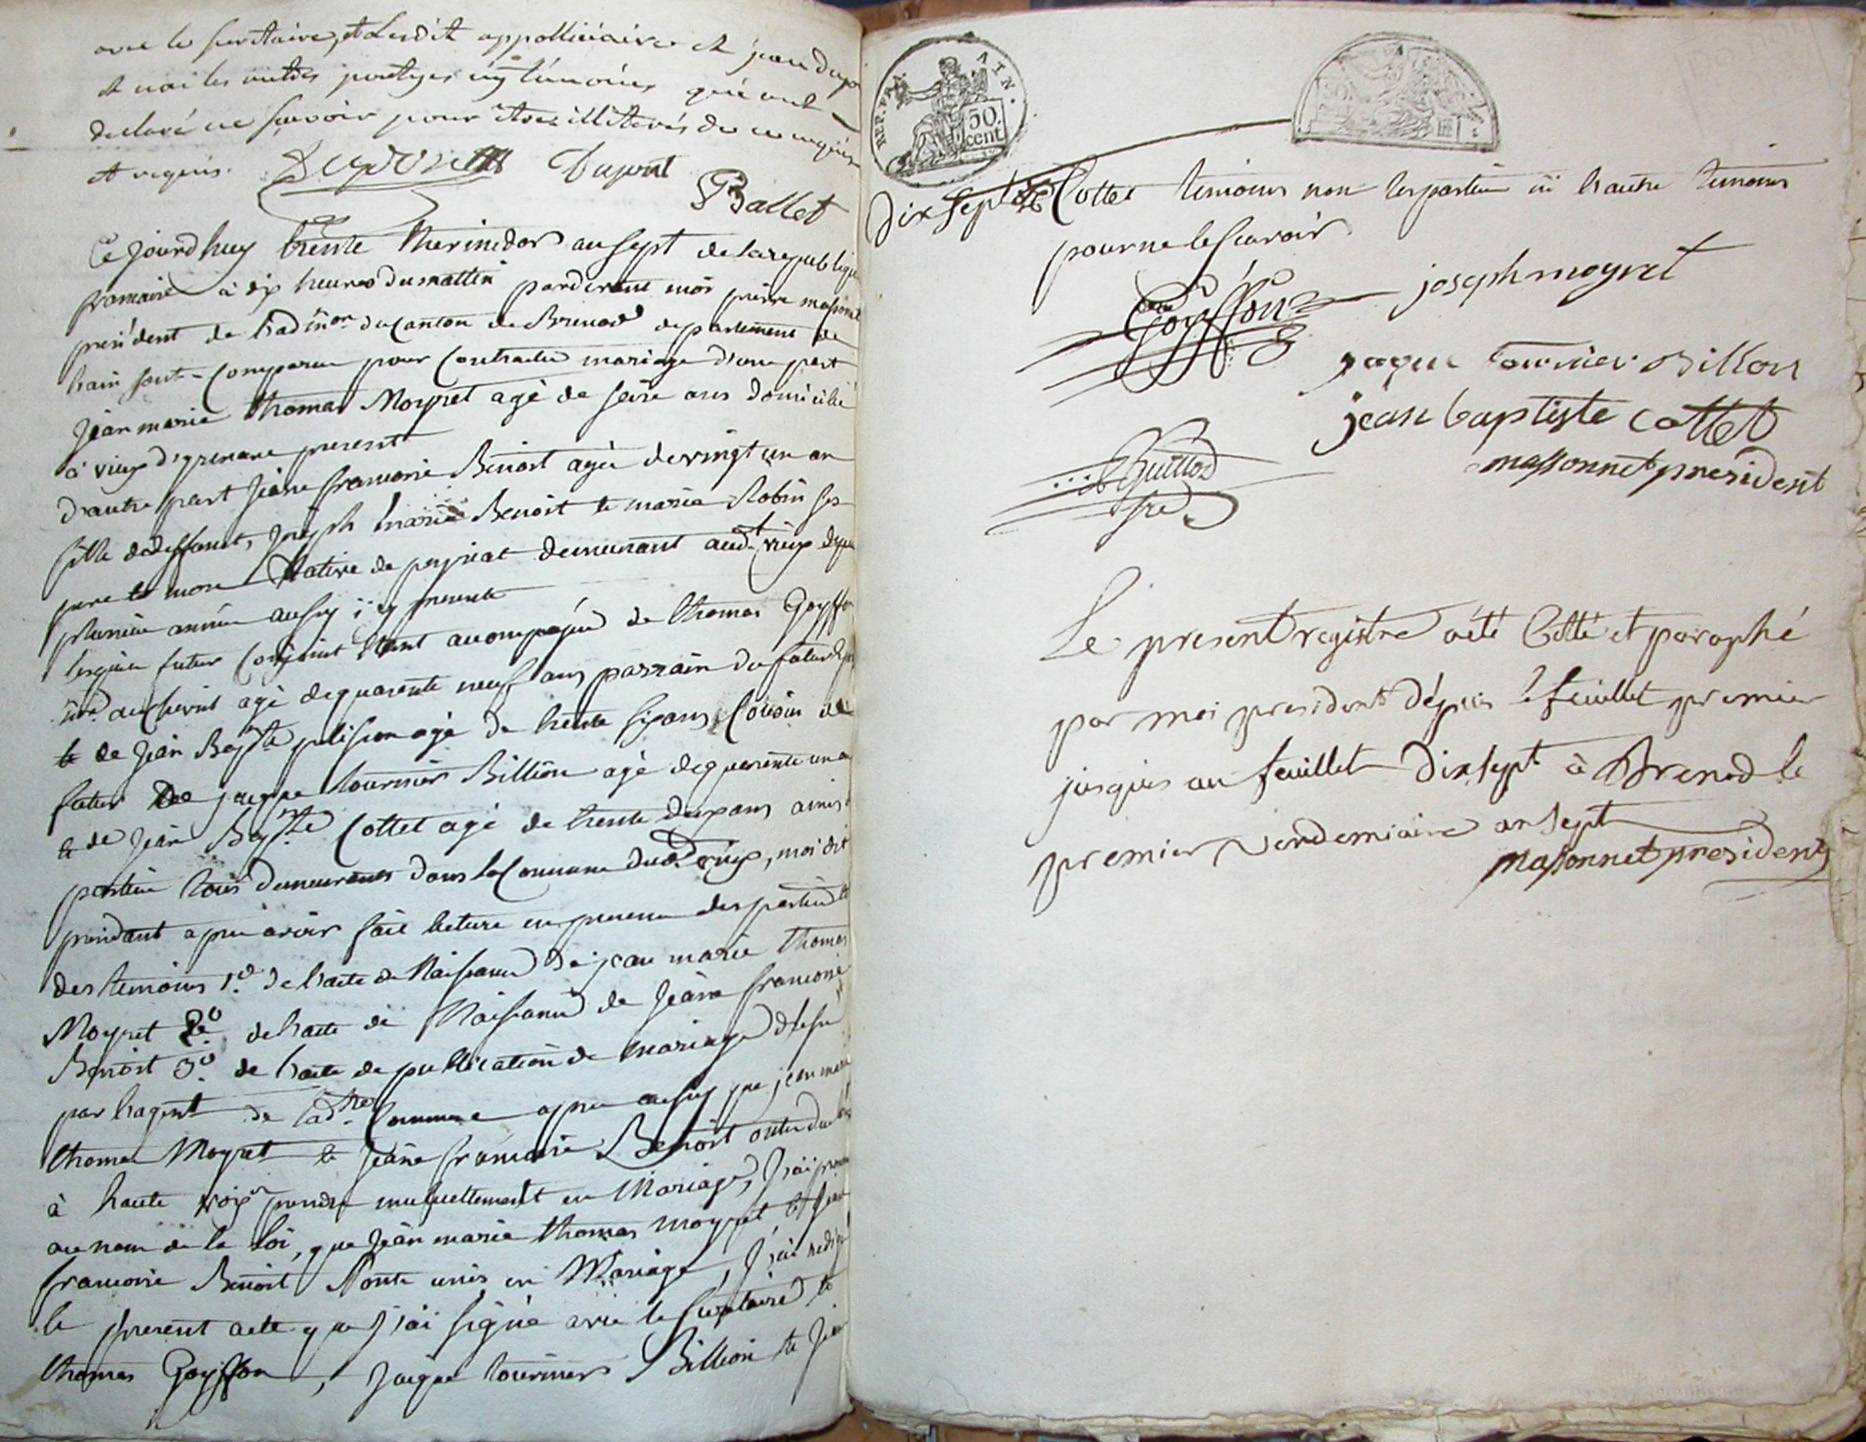 avec le secrétaire, et lesdits appolliciaires et jean dupon
et non les autres parties ny témoins qui ont
declaré ne scavoir pour être illiterés de ce enquis
et requis. Dupont Dupont
Ballet
Ce jourd'huy trente thermidor an sept de la republique
francaise à dix heures du mattin pardevant moi pierre massonnet
président de l'adm.on du Canton de Brenod departement de
l'ain sont comparu pour contracter mariage d'une part
Jean marie thomas Moyret agé de seize ans domicilié
à vieux d'yzenave present
d'autre part Jeane francoise Benoit agée de vingt un an
fille de deffunts Joseph marie Benoit et marie Robin ses
pere et mere Native de peyriat demeurant aud.t vieux depuis
plusieurs année aussy icy presente
lesquels futur conjoint étant accompagné de thomas Goyffon
agé de quarante neuf ans parrain du futur
et de Jean Bap.te pelisson agé de trente six ans, Cousin du
futur De jacque tournier Billion agé de quarente un an
et de Jean Bap.te Cottet agé de trente deux ans amis
parties tous demeurants dans la Commune dud. vieux, moi dit
president apres avoir fait lecture en presence des parties et
des temoins 1.o de l'acte de Naissance de jean marie thomas
Moyret 2.o de l'acte de Naissance de Jeane francoise
Benoit 3.o de l'acte de publication de mariage
par l'agent de lad.te Commune apres aussy que jean marie
thomas Moyret et Jeane francoise Benoit ont declaré
à haute voix prendre mutuellement en Mariage, J'ai
au nom de la loi, que Jean marie thomas moyret et Jeane
francoise Benoit sont unis en Mariage, J'ai redigé
le present acte que j'ai signé avec le secretaire et
thomas Goyffon, Jacque tournier Billion et Jean
REP. FRA. AIN.
50. cent.
Dix sept Cottet temoins non les parties ni l'autre temoins
pour ne le scavoir
Goiffon joseph moyret
jaque tournier Billion
jean baptiste cottet
massonnet president
Guillot
sre
Le present registre a été Cotté et paraphé
par moi president dépuis le feuillet premier
jusques au feuillet Dix sept à Brenod le
premier vendemiaire an sept
massonnet president